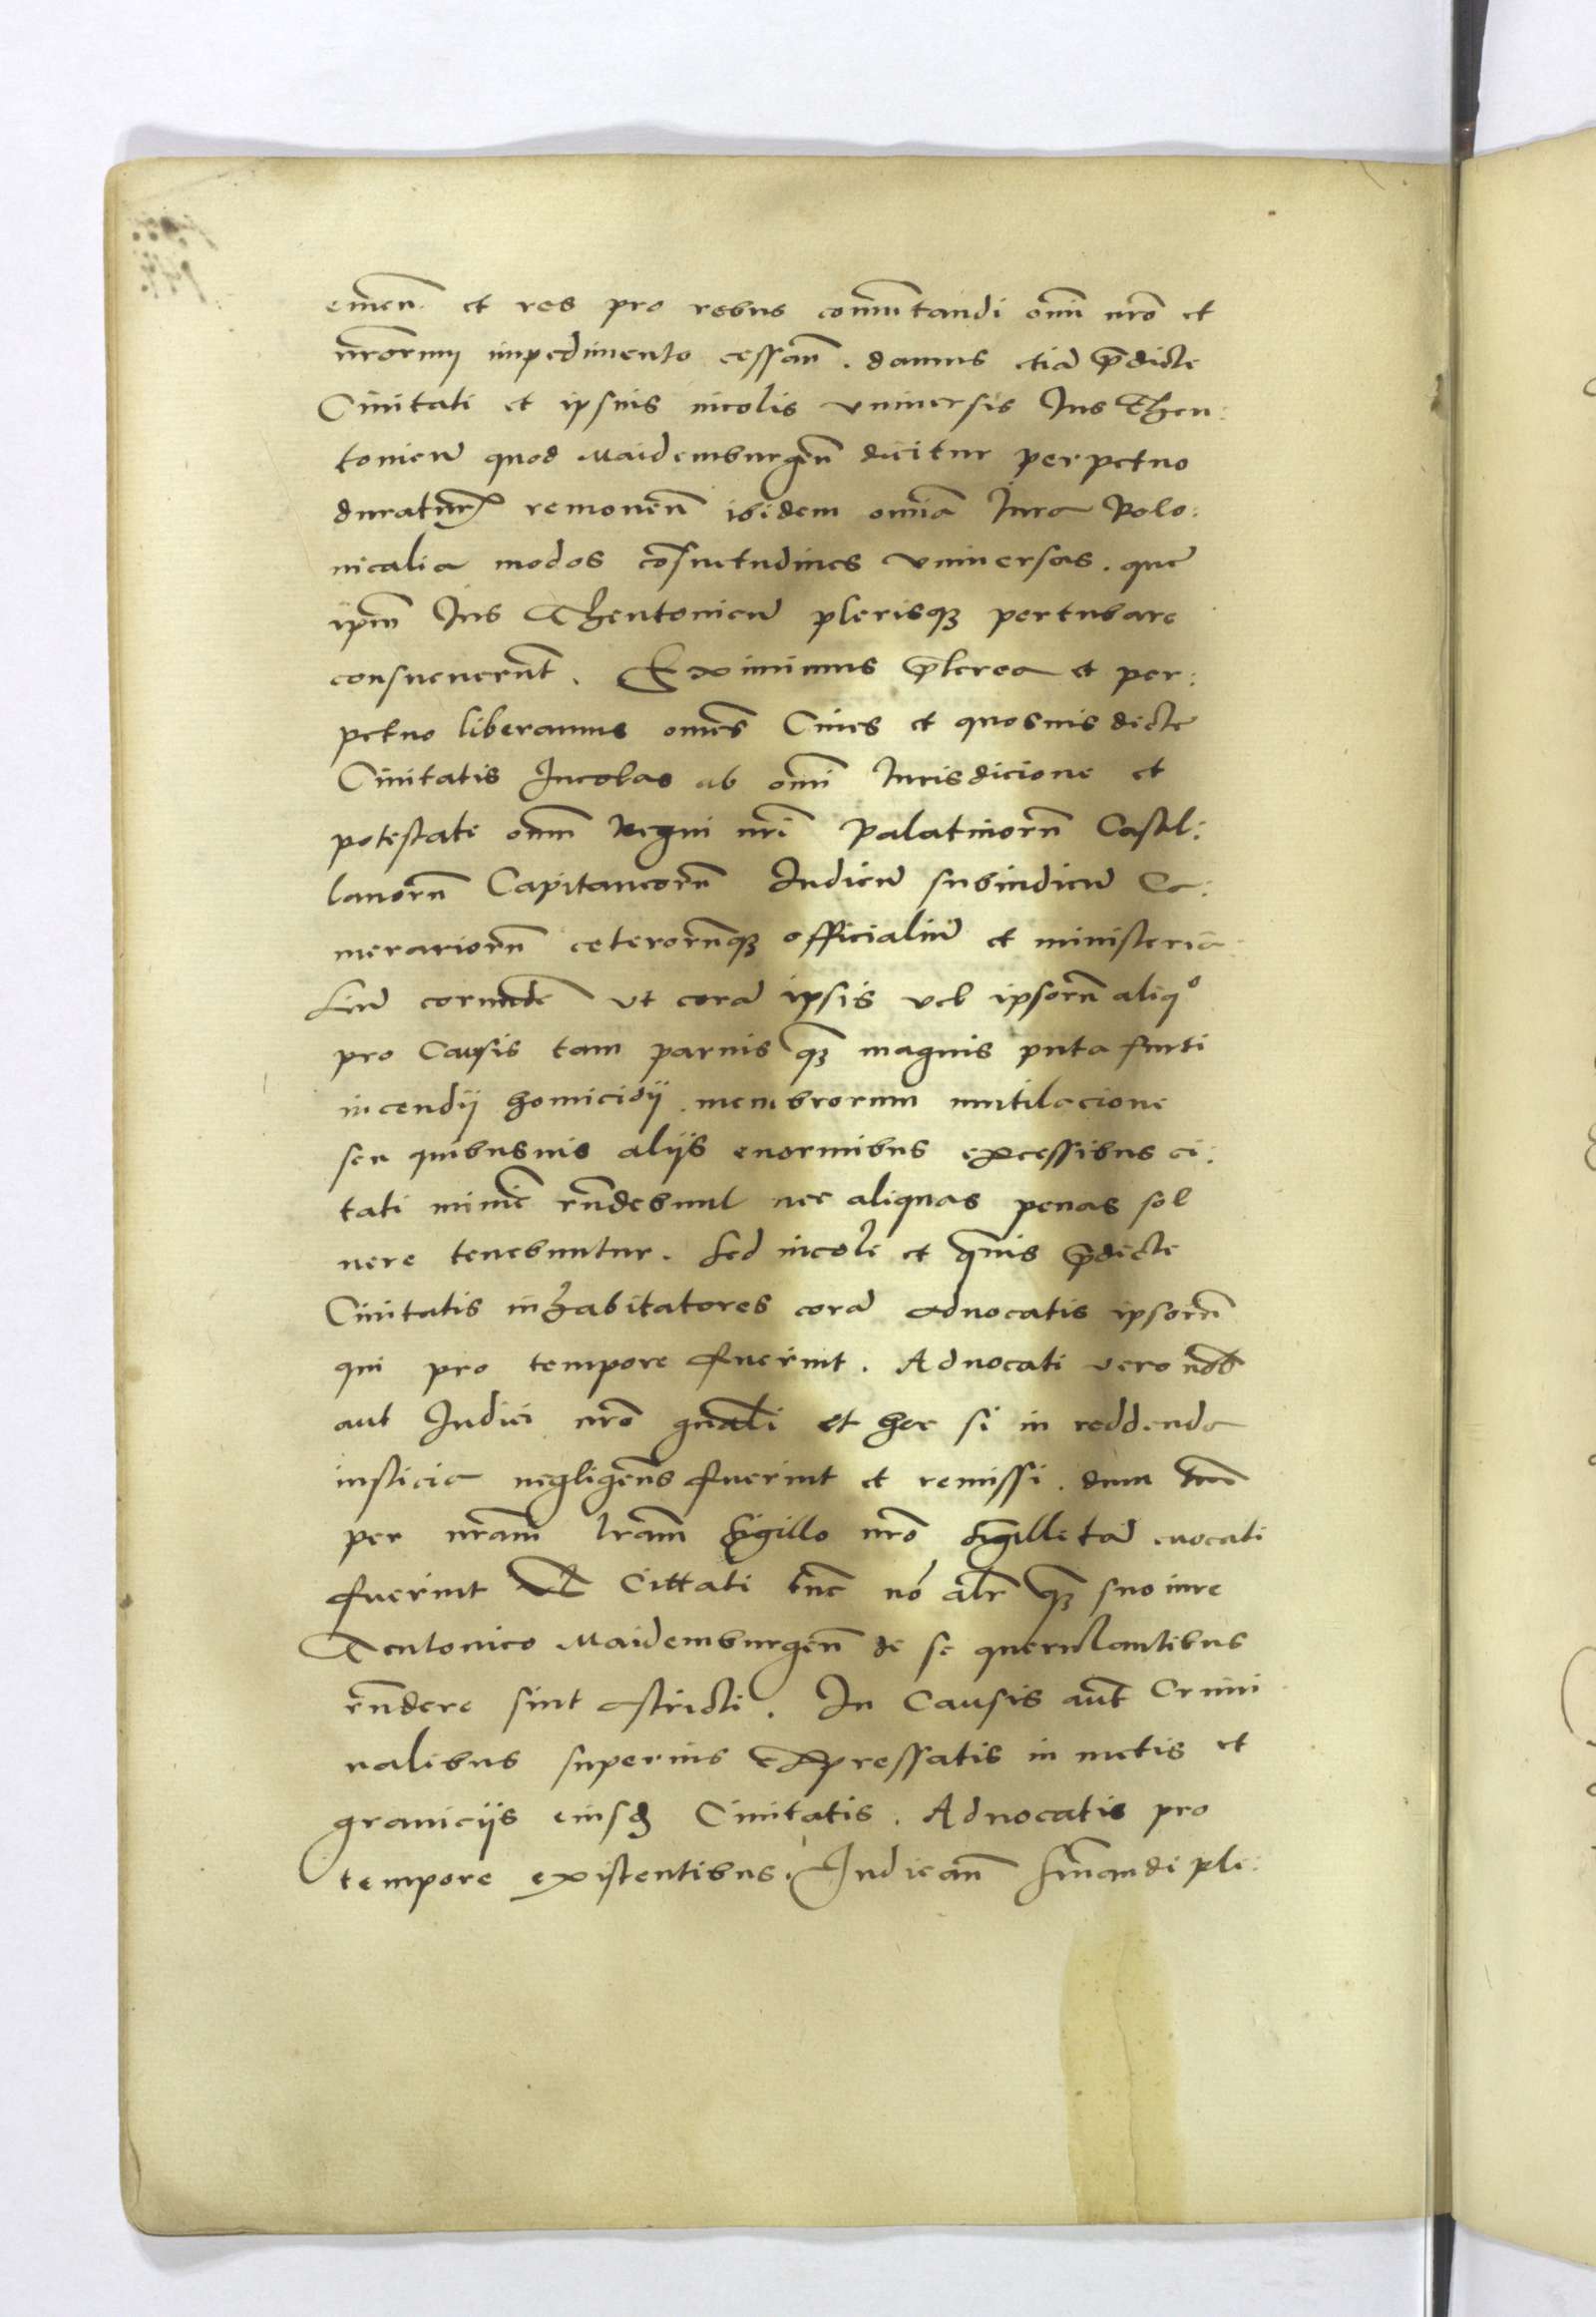 emen̄. et res pro rebus com̄utandi om̄i nr̄o et
nr̄orum impedimento cessan̄. damus etiā p̄dicte
Ciuitati et ipsius incolis vniuersis Ius Theu:
tonicū quod Maidemburgen̄ dicitur perpetuo
duraturū remouen̄ ibidem om̄ia Iura Polo:
nicalia modos cōsuetudines vniuersas. que
ip̄m Ius Theutonicū plerisqȝ pertubare
consueuerūt. Eximimus p̄terea et per:
petuo liberamus om̄es Ciues et quosuis dicte
Ciuitatis Incolas ab om̄i Iurisdicione et
potestate om̄m Regni nr̄i Palatinorū Castel:
lanorū Capitaneorū Iudicū subiudicū Ca:
merariorū ceterorūqȝ officialiū et ministeria:
liū eorundē vt corā ipsis vel ipsorū aliqº
pro Causis tam paruis qȝ magnis puta furti
incendij homicidij. membrorum mutilacione
seu quibusuis alijs enormibus excessibus ci:
tati minīe rn̄debunt nec aliquas penas sol
uere tenebuntur. Sed incole et q̄uis p̄dicte
Ciuitatis inhabitatores corā aduocatis ipsorū
qui pro tempore fuerint. Aduocati vero nob̄
aut Iudici nr̄o gn̄ali et hoc si in reddenda
iusticia negligen̄s fuerint et remissi. dum tn̄
per nr̄am lr̄am sigillo nr̄o sigillatā euocati
fuerint Et Cittati tūc nō alr̄ qȝ suo iure
Teutonico Maidemburgen̄ de se querulantibus
rn̄dere sint astricti. In Causis aut̄ Crimi
nalibus superius expressatis in metis et
granicijs eiusd̄ Ciuitatis. Aduocatis pro
tempore existentibus. Iudican̄ sn̄iandi ple: